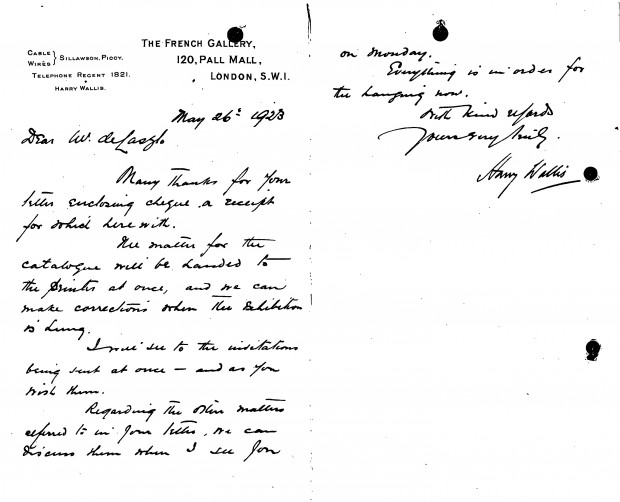 THE FRENCH GALLERY,
120, PALL MALL,
LONDON, S.W.1.
CABLE
WIRES } SILLAWSON, PICCY.
TELEPHONE REGENT 1821.
HARRY WALLIS.
May 26th 1923
Dear Mr. de Laszlo
Many thanks for your
letter enclosing cheque a receipt
for which herewith.
The matter for the
catalogue will be handed to
the printer at once, and we can
make corrections when the exhibition
is hung.
I will see to the invitations
being sent at once — and as you
wish them.
Regarding the other matters
referred to in your letter, we can
discuss them when I see you
on Monday.
Everything is in order for
the hanging now.
With kind regards
Yours very truly.
Harry Wallis